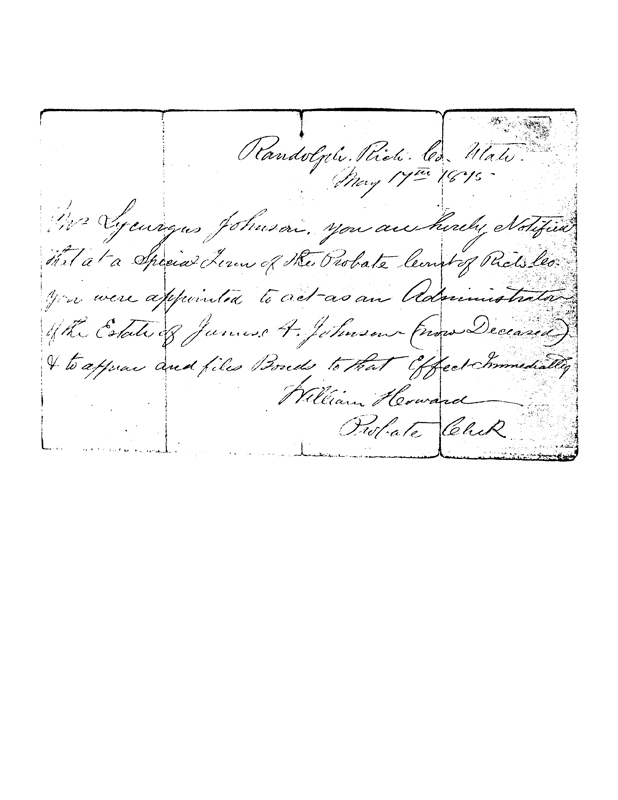 Randolph. Rich. Co. Utah.
May 17th 1875
Mr Lycurgus Johnson, you are hereby Notified
that at a Special Term of the Probate Court of Rich Co.
you were appointed to act as an Administrator
of the Estate of James A. Johnson (now Deceased)
& to appear and file Bonds to that Effect Immediatly
William Howard
Probate Clerk